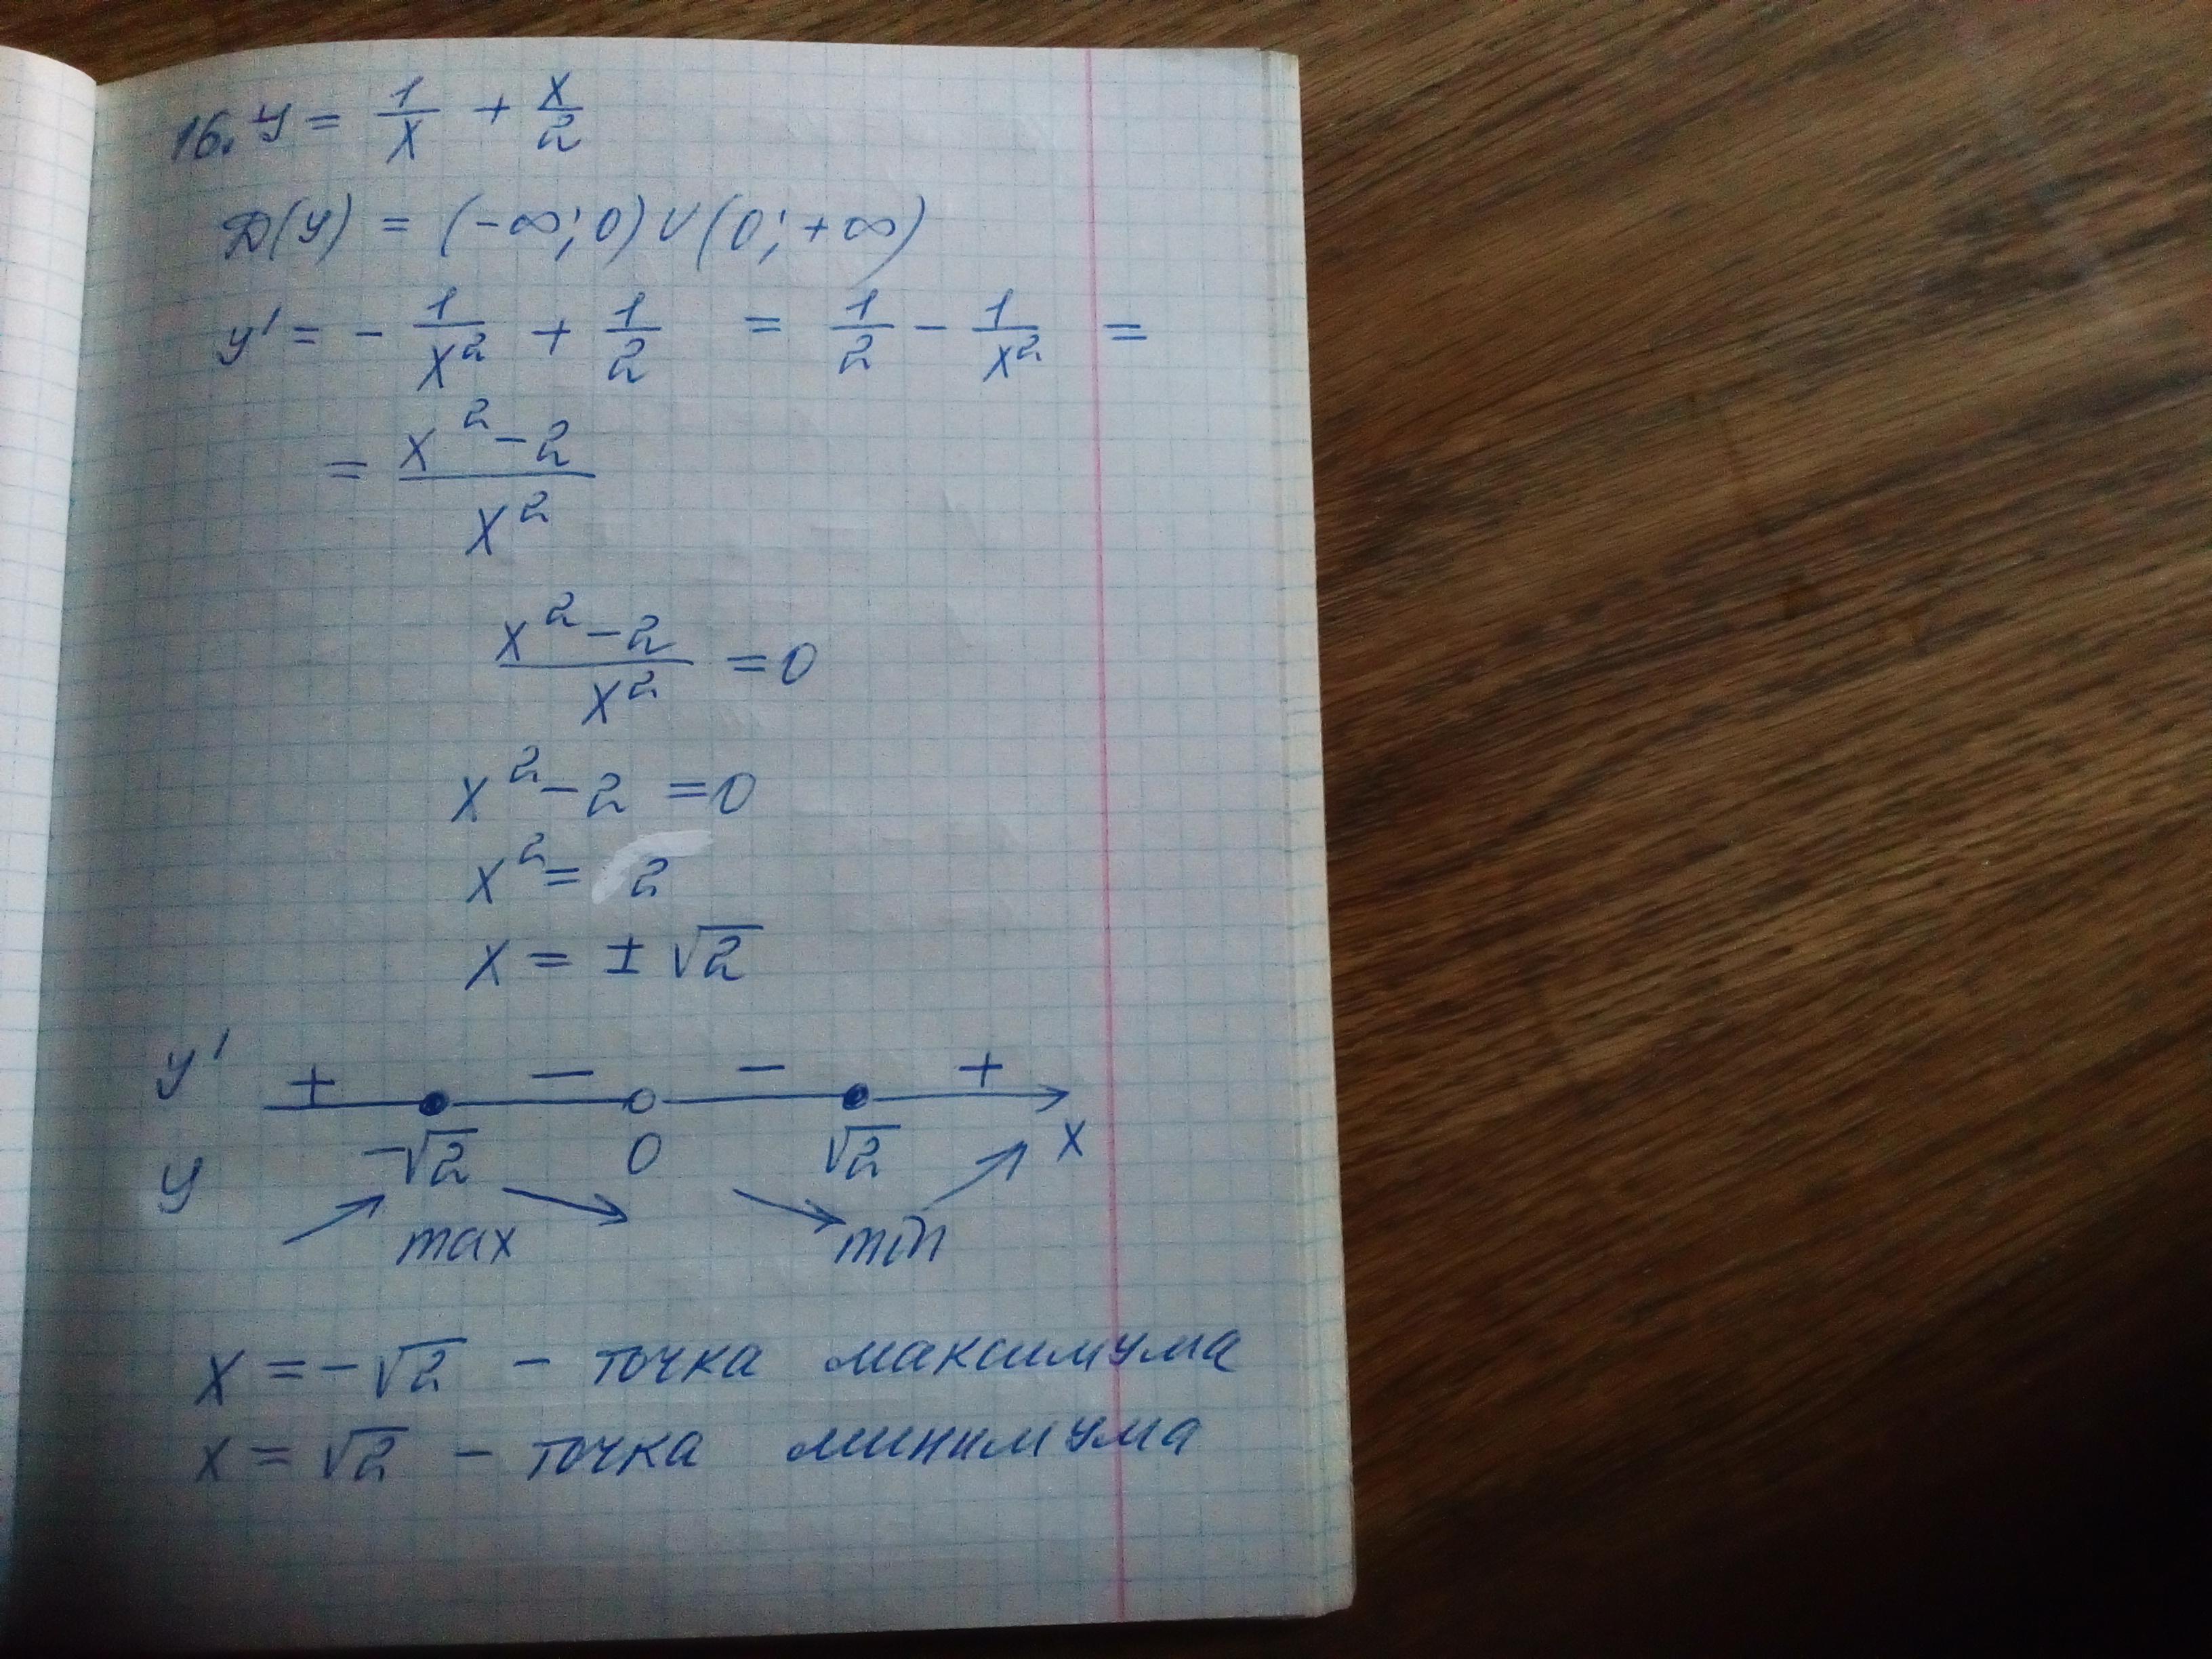 16. y = 1/x + x/2
D(y) = (-∞; 0) ∪ (0; +∞)
y' = - 1/x² + 1/2 = 1/2 - 1/x² =
= x² - 2 / x²
x² - 2 / x² = 0
x² - 2 = 0
x² = 2
x = ± √2
y' + - - +
-√2 0 √2 x
y
max min
x = -√2 - точка максимума
x = √2 - точка минимума